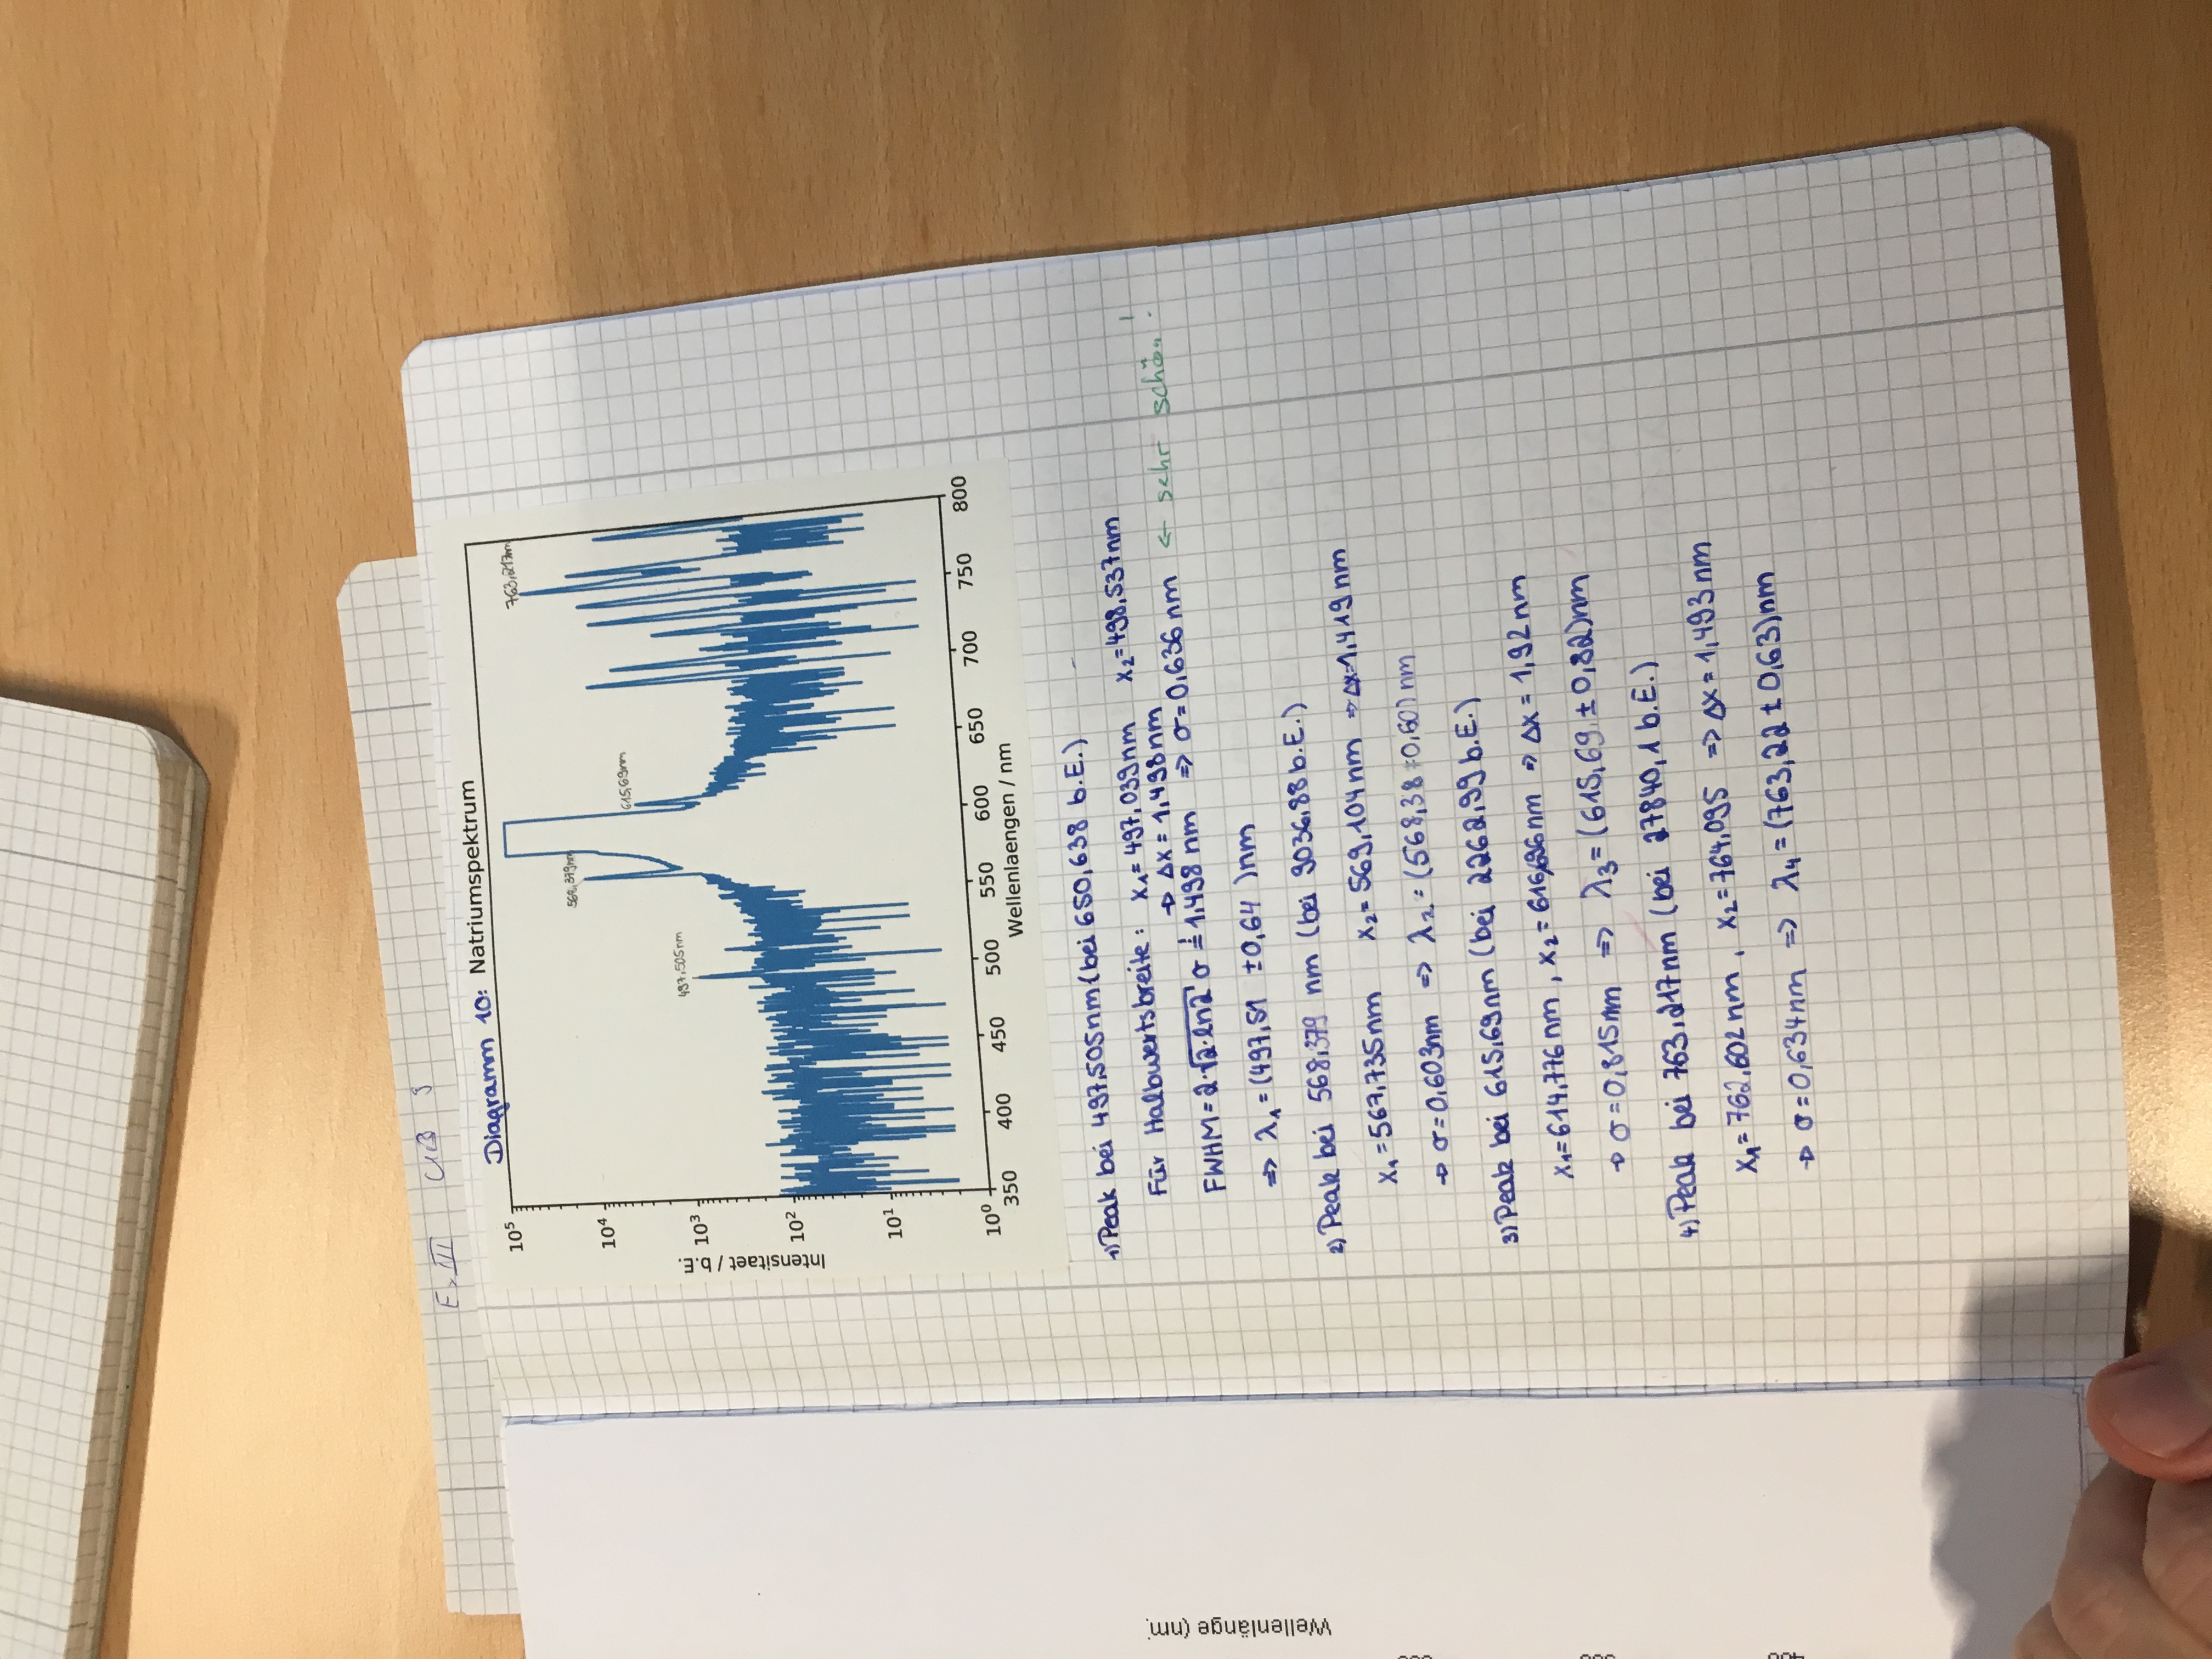 E, III UB 3
Diagramm 10: Natriumspektrum
10⁵
10⁴
10³
10²
10¹
10⁰
Intensitaet / b.E.
497,505nm
568,379nm
615,69nm
763,217nm
350 400 450 500 550 600 650 700 750 800
Wellenlaengen / nm
1) Peak bei 497,505nm (bei 650,638 b.E.)
Für Halbwertsbreite: x₁ = 497,039nm x₂ = 498,537nm
→ Δx = 1,498nm
FWHM = 2·√2·ln2 σ ≟ 1,498 nm ⇒ σ = 0,636 nm ← sehr schön!
⇒ λ₁ = (497,51 ± 0,64 )nm
2) Peak bei 568,379 nm (bei 9036,88 b.E.)
x₁ = 567,735nm x₂ = 569,104nm → Δx = 1,419nm
→ σ = 0,603nm ⇒ λ₂ = (568,38 ± 0,60) nm
3) Peak bei 615,69nm (bei 2262,99 b.E.)
x₁ = 614,776 nm, x₂ = 616,696nm ⇒ Δx = 1,92nm
→ σ = 0,815nm ⇒ λ₃ = (615,69 ± 0,82)nm
4) Peak bei 763,217nm (bei 27840,1 b.E.)
x₁ = 762,602 nm, x₂ = 764,095 ⇒ Δx = 1,493nm
→ σ = 0,634nm ⇒ λ₄ = (763,22 ± 0,63)nm
Wellenlänge (nm)
400